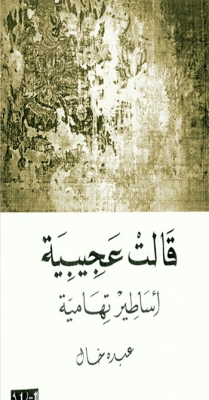 قَالتْ عَجِيبِيَة
أسَاطِيرْ تِهَاميَّة
عبده خال